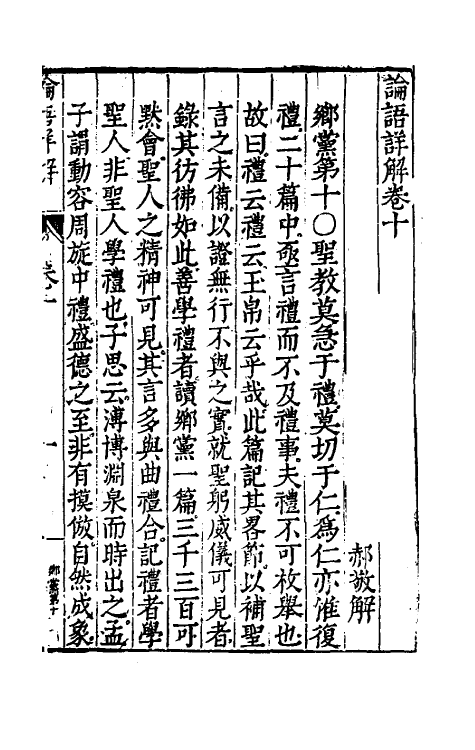 論語詳解卷十
郝敬解
鄉黨第十○聖教莫急于禮莫切于仁為仁亦惟復
禮二十篇中亟言禮而不及禮事夫禮不可枚舉也
故曰禮云禮云玉帛云乎哉此篇記其畧節以補聖
言之未備以證無行不與之實就聖躬威儀可見者
錄其彷彿如此善學禮者讀鄉黨一篇三千三百可
默會聖人之精神可見其言多與曲禮合記禮者學
聖人非聖人學禮也子思云溥博淵泉而時出之孟
子謂動容周旋中禮盛德之至非有摸倣自然成象
論語詳解
卷十
一
鄉黨第十